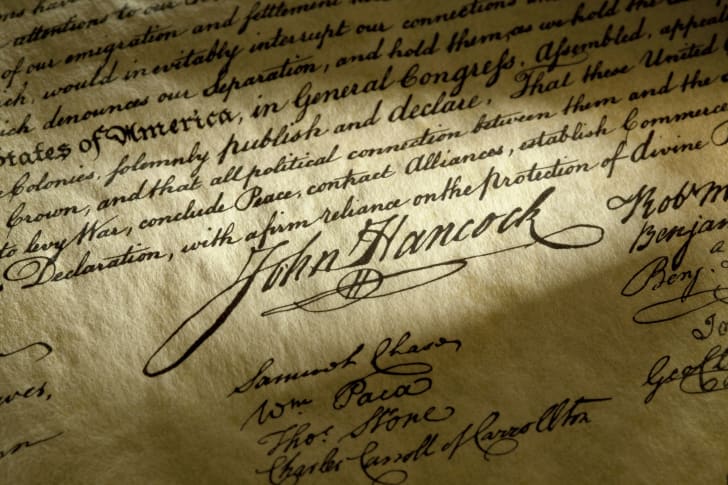 ns have
attentions to our
of our emigration and ſettlement
would inevitably interrupt our connections
denounces our Separation, and hold them, as we hold the
States of America, in General Congreſs, Aſsembled, appeal
Colonies, ſolemnly publish and declare, That these United
Crown, and that all political connection between them and the
to levy War, conclude Peace, contract Alliances, establish Commerce
Declaration, with a firm reliance on the protection of divine P
John Hancock
Samuel Chase
Wm. Paca
Thos. Stone
Charles Carroll of Carrollton
Robt M
Benjam
Benj.
Ja
Geo.